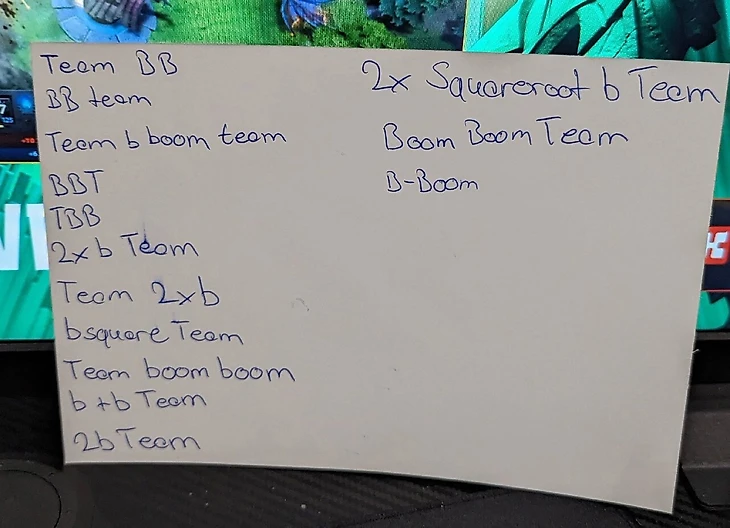 Team BB
BB team
Team b boom team
BBT
TBB
2x b Team
Team 2xb
bsquare Team
Team boom boom
b+b Team
2b Team
2x Squareroot b Team
Boom Boom Team
B-Boom